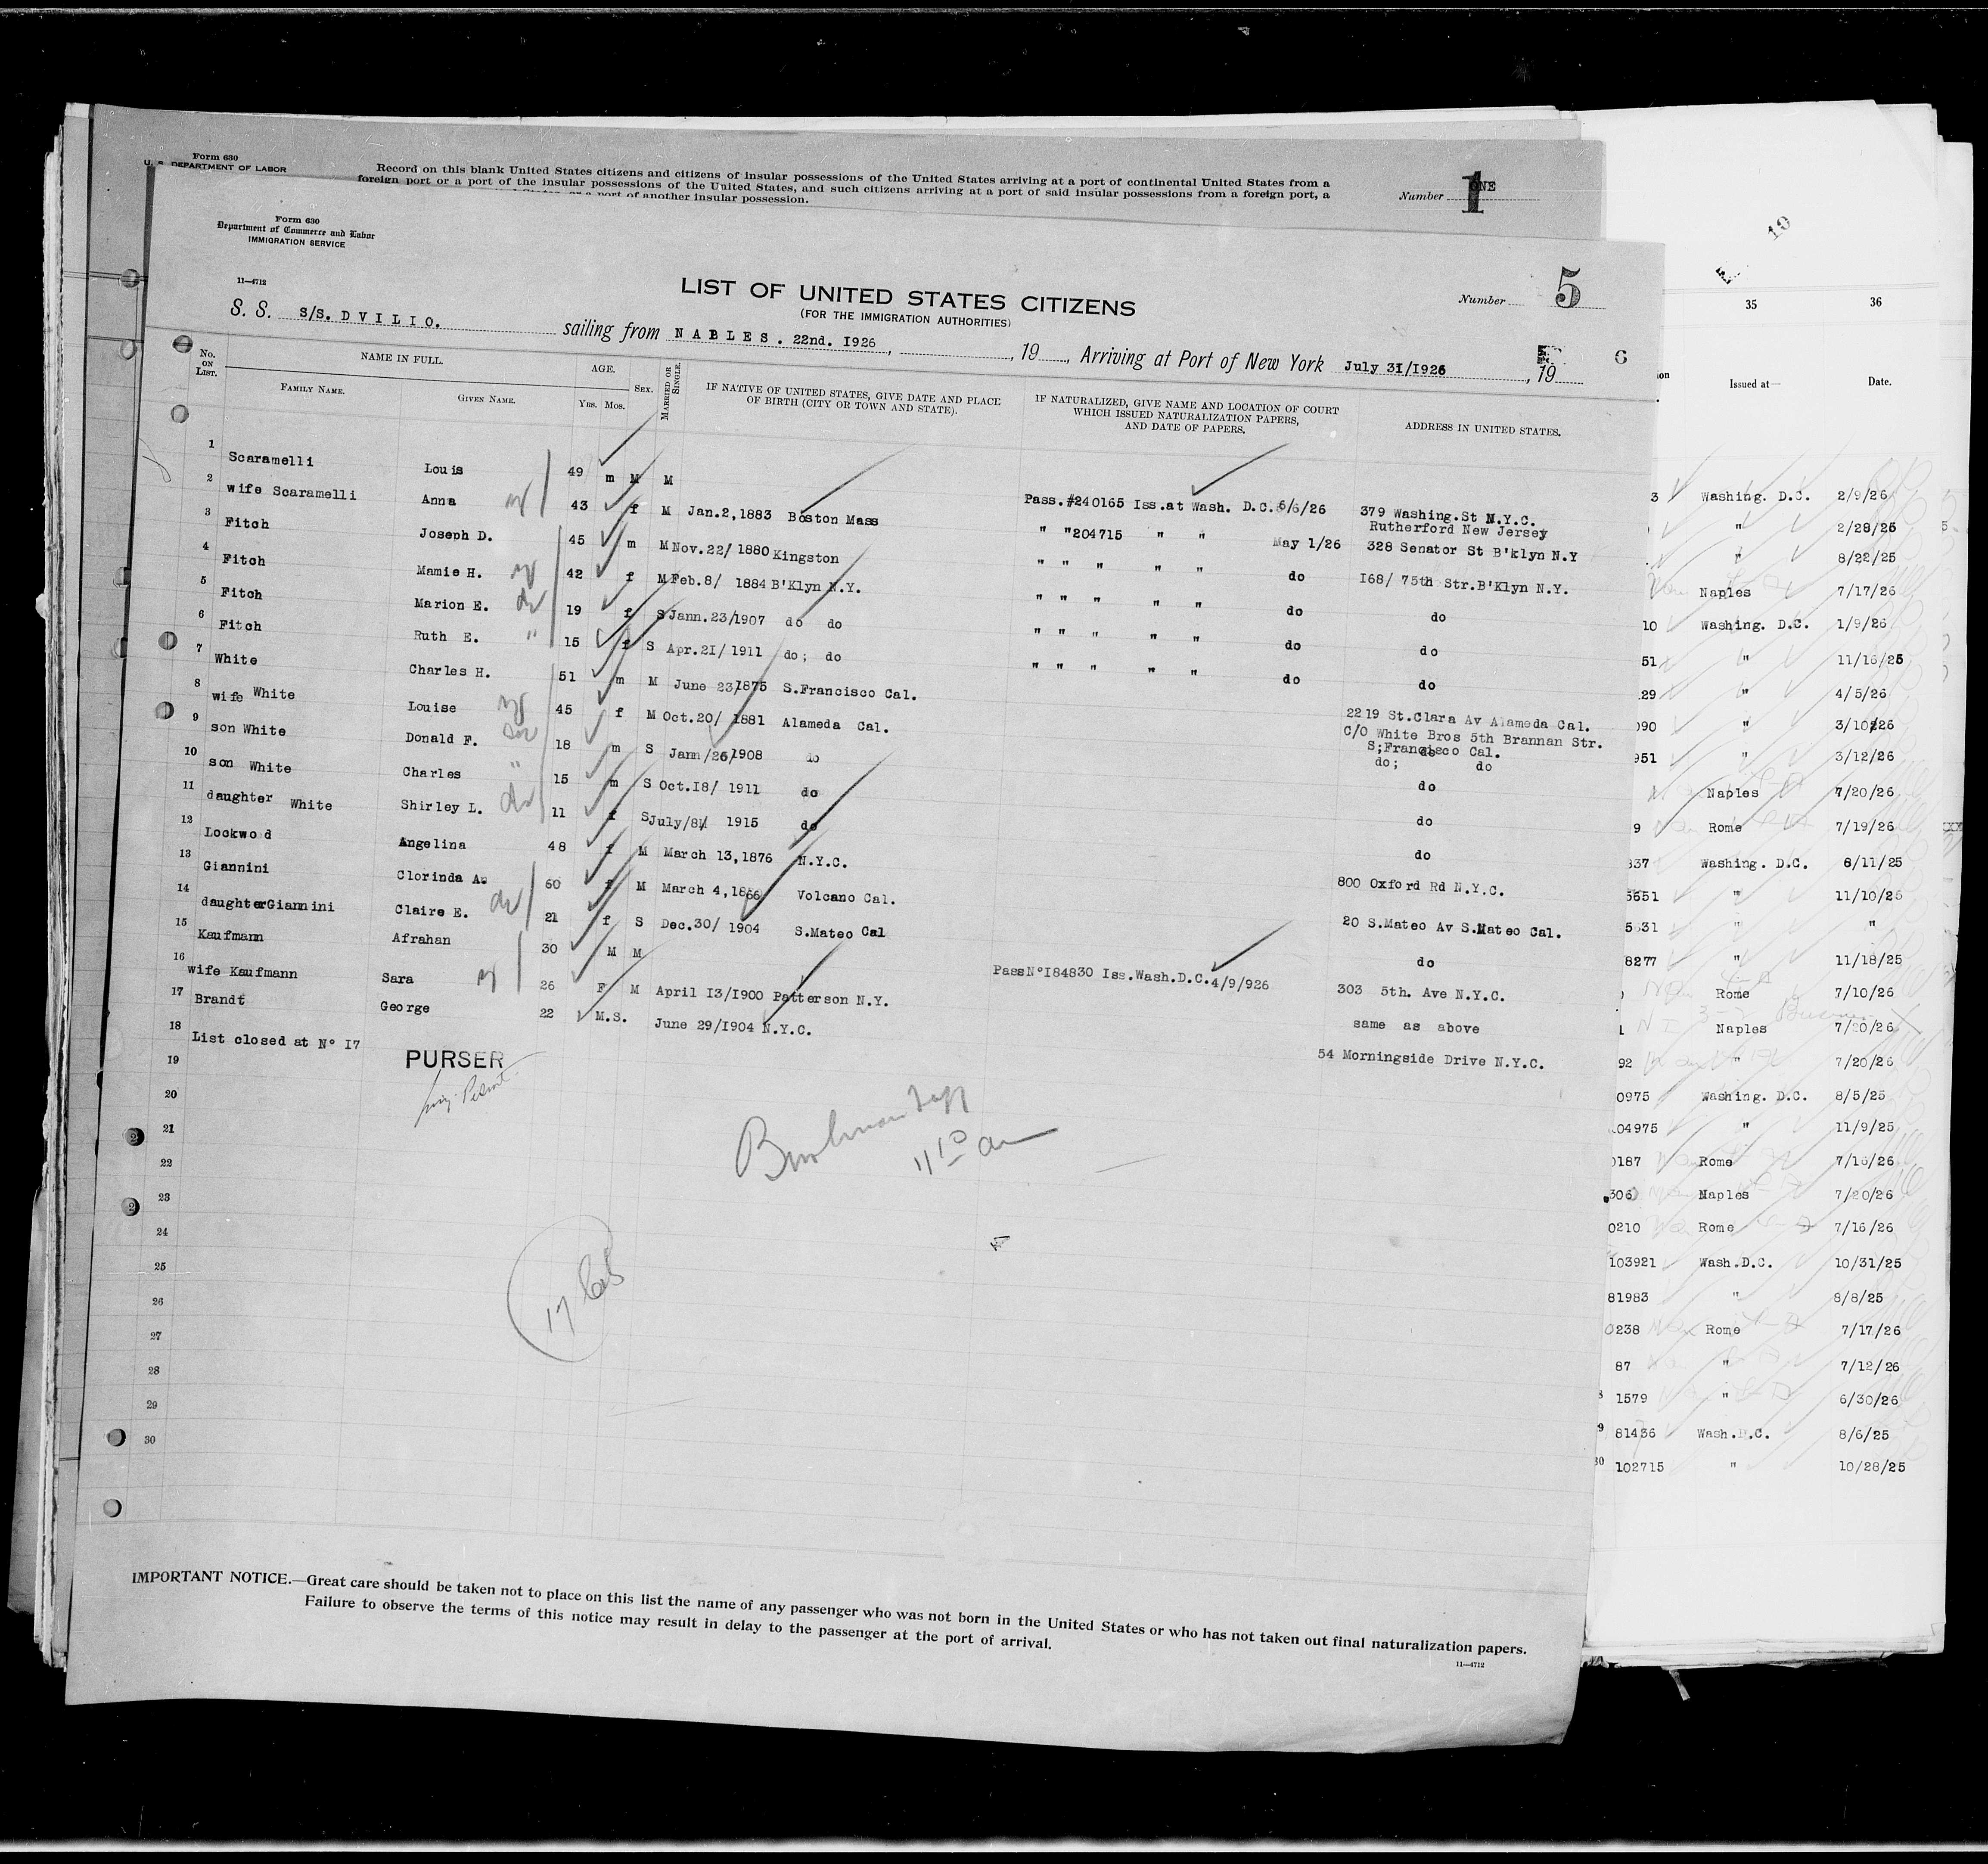 Form 630
U. S. DEPARTMENT OF LABOR
Record on this blank United States citizens and citizens of insular possessions of the United States arriving at a port of continental United States from a
foreign port or a port of the insular possessions of the United States, and such citizens arriving at a port of said insular possessions from a foreign port, a
port of another insular possession.
Number ONE 1
Form 630
Department of Commerce and Labor
IMMIGRATION SERVICE
11—4712
LIST OF UNITED STATES CITIZENS
(FOR THE IMMIGRATION AUTHORITIES)
Number 5
S. S. S/S. D V I L I O. sailing from N A B L E S . 22nd. I926, , 19 , Arriving at Port of New York July 31/I926 , 19
6
No. ON LIST. NAME IN FULL. FAMILY NAME. GIVEN NAME. AGE. YRS. MOS. SEX. MARRIED OR SINGLE. IF NATIVE OF UNITED STATES, GIVE DATE AND PLACE OF BIRTH (CITY OR TOWN AND STATE). IF NATURALIZED, GIVE NAME AND LOCATION OF COURT WHICH ISSUED NATURALIZATION PAPERS, AND DATE OF PAPERS. ADDRESS IN UNITED STATES.
1 Scaramelli Louis 49 m M M Pass.#240165 Iss.at Wash. D.C. 6/6/26 379 Washing.St N.Y.C.
Rutherford New Jersey
2 wife Scaramelli Anna 43 f M Jan.2,1883 Boston Mass " "204715 " " May 1/26 328 Senator St B'klyn N.Y
3 Fitch Joseph D. 45 m M Nov.22/ 1880 Kingston " " " " " do I68/ 75th Str.B'Klyn N.Y.
4 Fitch Mamie H. 42 f M Feb.8/ 1884 B'Klyn N.Y. " " " " " do do
5 Fitch Marion E. 19 f S Jann.23/1907 do do " " " " " do do
6 Fitch Ruth E. " 15 f S Apr.2I/ 1911 do; do " " " " " do do
7 White Charles H. 51 m M June 23I875 S.Francisco Cal. 2219 St.Clara Av Alameda Cal.
8 wife White Louise 45 f M Oct.20/ 1881 Alameda Cal. C/O White Bros 5th Brannan Str.
S;Francisco Cal.
9 son White Donald F. 18 m S Jann/26/1908 do do; do
10 son White Charles " 15 m S Oct.I8/ 1911 do do
11 daughter White Shirley L. 11 f S July/8 1915 do do
12 Lockwod Angelina 48 f M March 13,1876 N.Y.C. do
13 Giannini Clorinda A. 60 f M March 4,1866 Volcano Cal. 800 Oxford Rd N.Y.C.
14 daughterGiannini Claire E. 21 f S Dec.30/ 1904 S.Mateo Cal 20 S.Mateo Av S.Mateo Cal.
15 Kaufmann Afrahan 30 M M PassN°I84830 Iss.Wash.D.C.4/9/926 do
16 wife Kaufmann Sara 26 F M April I3/I900 Patterson N.Y. 303 5th. Ave N.Y.C.
17 Brandt George 22 M.S. June 29/I904 N.Y.C. same as above
18 List closed at N° I7 54 Morningside Drive N.Y.C.
PURSER
19
20
21
22
23
24
25
26
27
28
29
30
11 10 am
17
IMPORTANT NOTICE.—Great care should be taken not to place on this list the name of any passenger who was not born in the United States or who has not taken out final naturalization papers.
Failure to observe the terms of this notice may result in delay to the passenger at the port of arrival.
11—4712
10
35 36
Issued at— Date.
3 Washing. D.C. 2/9/26
" 2/28/25
" 8/22/25
Naples 7/17/26
10 Washing. D.C. 1/9/26
51 " 11/16/25
29 " 4/5/26
090 " 3/10/26
951 " 3/12/26
Naples 7/20/26
9 Rome 7/19/26
837 Washing. D.C. 6/11/25
5651 " 11/10/25
5631 " "
8277 " 11/18/25
Rome 7/10/26
1 Naples 7/20/26
92 " 7/20/26
0975 Washing. D.C. 8/5/25
04975 " 11/9/25
0187 Rome 7/16/26
306 Naples 7/20/26
0210 Rome 7/16/26
103921 Wash.D.C. 10/31/25
81983 " 8/8/25
0238 Rome 7/17/26
87 " 7/12/26
1579 " 6/30/26
81436 Wash.D.C. 8/6/25
102715 " 10/28/25